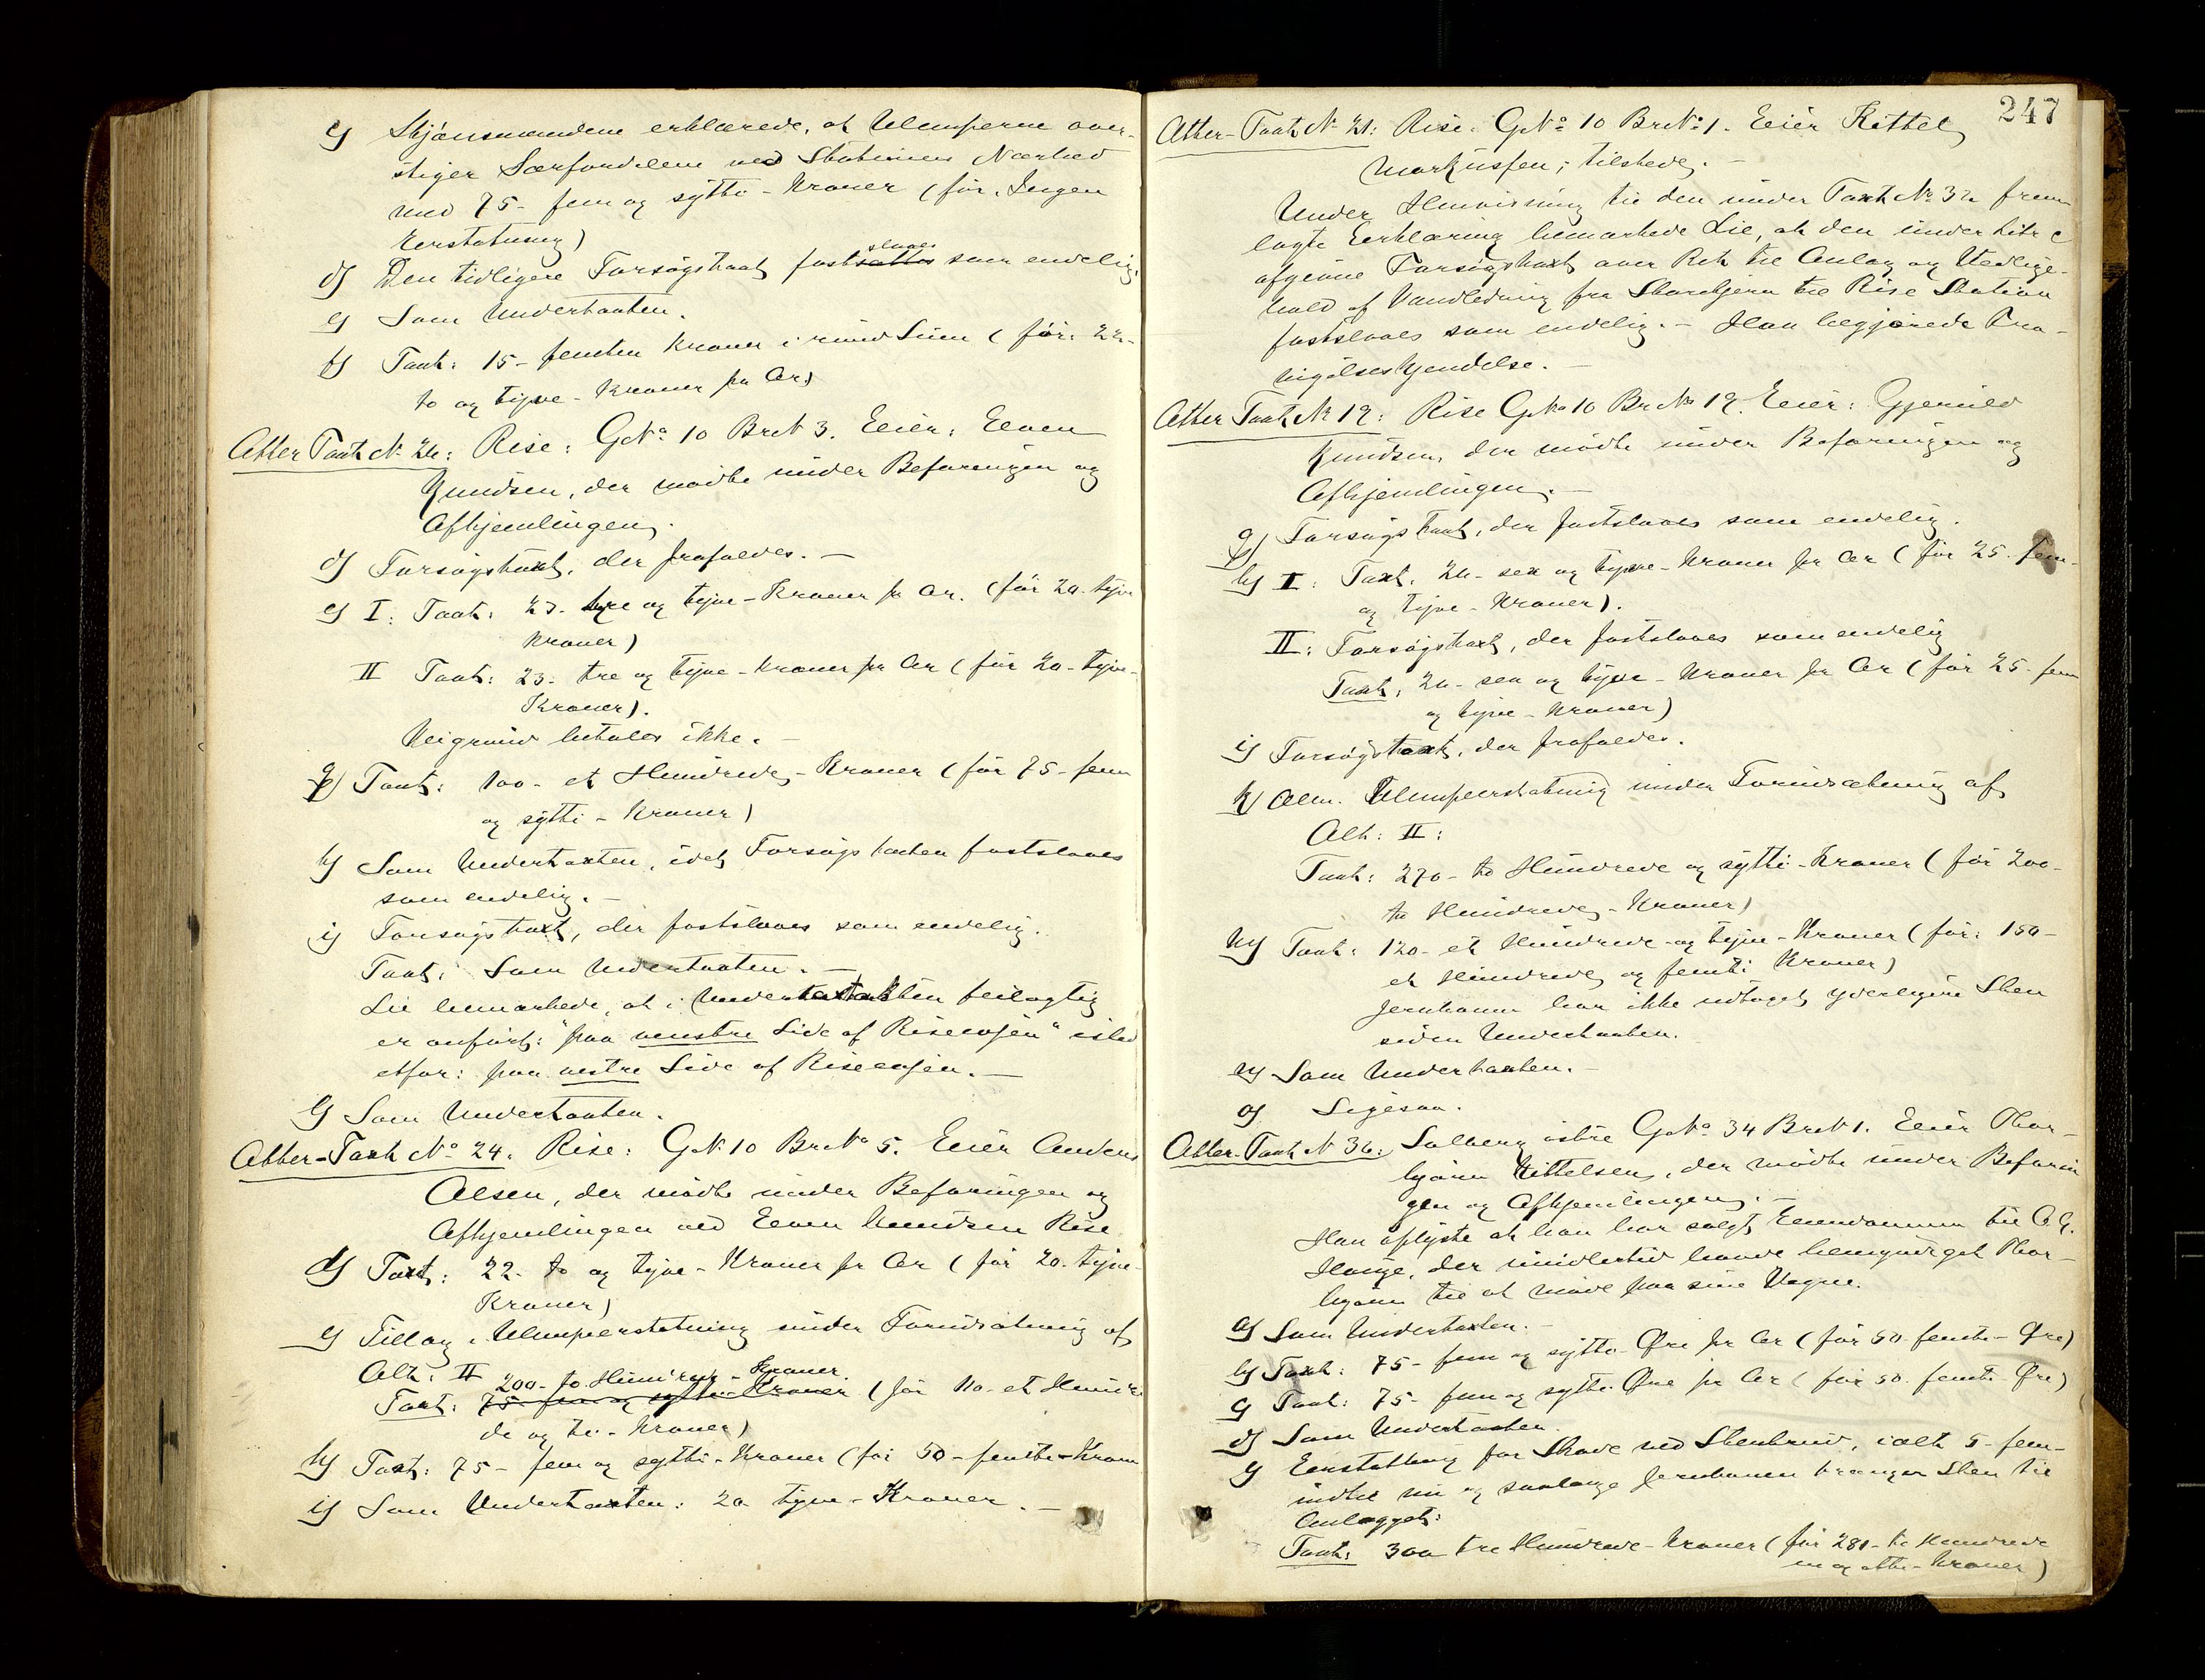 c) Skjønsmændene erklærede, at Ulemperne over-
stiger Særfordelene ved Stationens Nærhed
med 75- fem og sytti - Kroner (før: Ingen
Erstatning)
d) Den tidligere Forsøgstaxt fastsættes slaaes som endelig.
e) Som Undertaxten.
f) Taxt: 15- femten Kroner i rund Sum (før: 22-
to og tyve - Kroner pr Ar)
Atter Taxt No 26: Rise: GNo 10 BrN 3. Eier: Even
Knudsen, der mødte under Befaringen og
Afhjemlingen.
d) Forsøgstaxt, der frafaldes. -
e) I: Taxt: 23- tre og tyve - Kroner pr Ar. (før 20- tyve
Kroner)
II Taxt: 23- tre og tyve - Kroner pr Ar (før 20- tyve-
Kroner).
Veigrund betales ikke. -
g) Taxt: 100- et Hundrede - Kroner (før 75- fem
og sytti - Kroner)
h) Som Undertaxten, idet Forsøgstaxten fastslaaes
som endelig. -
i) Forsøgstaxt, der fastslaaes som endelig.
Taxt: Som Undertaxten. -
Lie bemærkede, at i Undertaxten feilagtig
er anført: "paa venstre Side af Riseelven" isted
etfor: paa vestre Side af Riseelven. -
l) Som Undertaxten.
Atter-Taxt No 24. Rise: GN 10 BrNo 5. Eier Anders
Olsen, der mødte under Befaringen og
Afhjemlingen ved Even Knudsen Rise
d) Taxt: 22- to og tyve - Kroner pr Ar (før 20- tyve-
Kroner)
e) Tillæg i Ulempeerstatning under Forudsætning af
Alt: II 200- to Hundrede - Kroner.
Taxt: 75- fem og sytti - Kroner (før 110- et Hundre
de og ti - Kroner)
h) Taxt: 75- fem og sytti - Kroner (før 50- femti - Kroner
i) Som Undertaxten: 20 tyve - Kroner. -
247
Atter-Taxt No 21: Rise. GNo 10 BrNo 1. Eier Kittel
Markussen; tilstede. -
Under Henvisning til den under Taxt No 32 frem
lagte Erklæring bemærkede Lie, at den under Litr c
afgivne Forsøgstaxt over Ret til Anlæg og Vedlige-
hold af Vandledning fra Stortjern til Rise Station
fastslaaes som endelig. - Han begjærede Fra-
vigelseskjendelse. -
Atter Taxt No 19: Rise GNo 10 BrNo 19. Eier: Gjeruld
Knudsen, der mødte under Befaringen og
Afhjemlingen. -
g) Forsøgstaxt, der fastslaaes som endelig.
h) I: Taxt: 26- sex og tyve - Kroner pr Ar (før 25- fem-
og tyve - Kroner).
II: Forsøgstaxt, der fastslaaes som endelig
Taxt: 26- sex og tyve - Kroner pr Ar (før 25- fem
og tyve - Kroner)
i) Forsøgstaxt, der frafaldes.
k) Alm. Ulempeerstatning under Forudsætning af
Alt: II:
Taxt: 270- to Hundrede og sytti - Kroner (før 200-
to Hundrede - Kroner)
m) Taxt: 120- et Hundrede og tyve - Kroner (før: 150-
et Hundrede og femti Kroner)
Jernbanen har ikke udtaget yderligere Sten
siden Undertaxten.
n) Som Undertaxten. -
o) Ligesaa.
Atter-Taxt N 36: Solberg østre GNo 34 BrN 1. Eier Thor-
bjørn Kittelsen, der mødte under Befarin
gen og Afhjemlingen. -
Han oplyste at han har solgt Eiendommen til
Hauge, der imidlertid havde bemyndiget Thor-
bjørn til at møde paa sine Vegne.
a) Som Undertaxten. -
b) Taxt: 75- fem og sytti - Øre pr Ar (før 50- femti - Øre)
c) Taxt: 75- fem og sytti Øre pr Ar (før 50- femti - Øre)
d) Som Undertaxten.
e) Erstatning for Skade ved Stenbrud, ialt 5- fem-
indtil nu og saalænge Jernbanen trænger Sten til
Anlægget:
Taxt: 300 tre Hundrede - Kroner (før 281- to Hundrede
en og otti - Kroner)